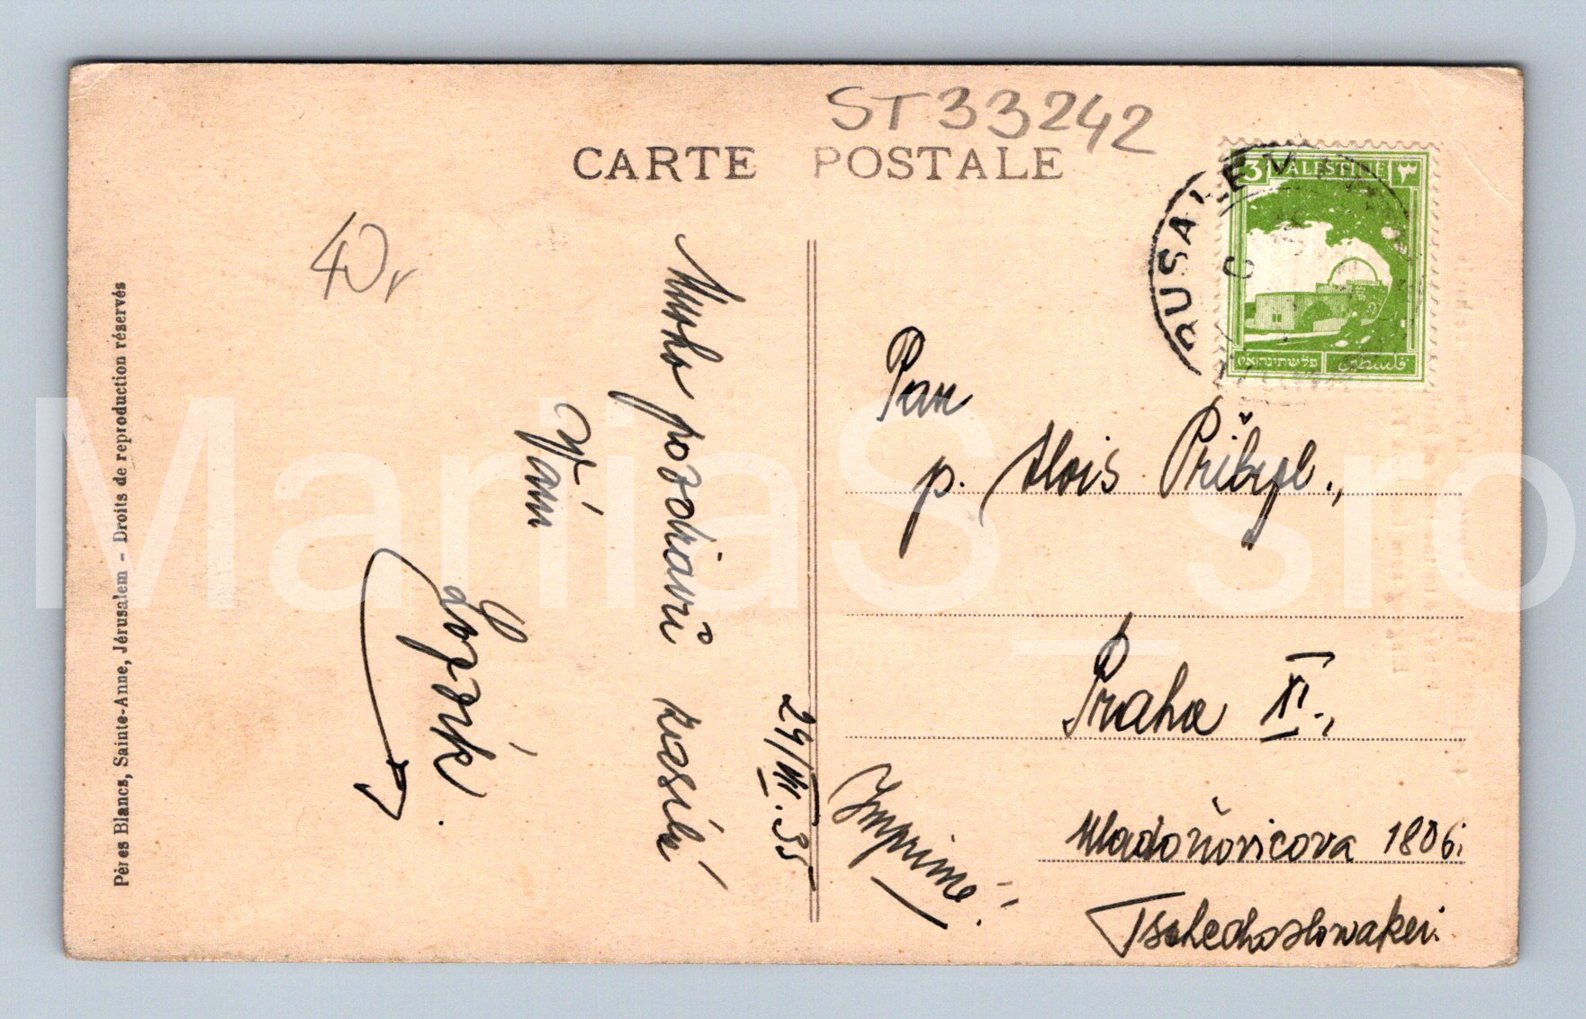 ST33242
CARTE POSTALE
RUSALEM
3 PALESTINE ٣
פלשתינה א״י فلسطين
40,-
Mnoho pozdravů zasílá
Vám
29/VII.35
Pan
p. Alois Přibyl.,
Praha XI.,
Mladoňovicova 1806.
Tschechoslowakei.
Imprimé!
Pères Blancs, Sainte-Anne, Jérusalem - Droits de reproduction réservés
ManiaS_sro